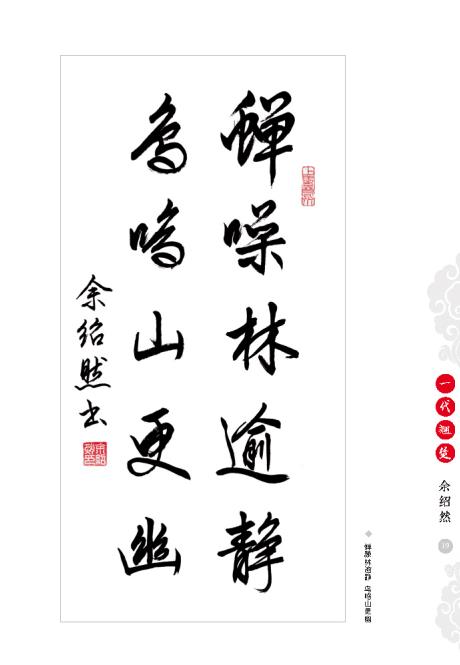 蝉噪林逾静
鸟鸣山更幽
余绍然书
一代翘楚
余绍然
19
蝉噪林逾静 鸟鸣山更幽